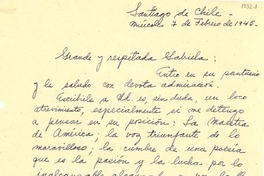 Santiago de Chile -
miércoles 7 de Febrero de 1945.-
Grande y respetada Gabriela:
Entro en su santuario
y la saludo con devota admiración.
Escribirle a Ud. es, sin duda, un loco
atrevimiento, especialmente si me detengo
a pensar en su posición: La Maestra
de América; la voz triunfante de lo
maravilloso; la cumbre de una poesía
que es la pasión y la lucha por lo